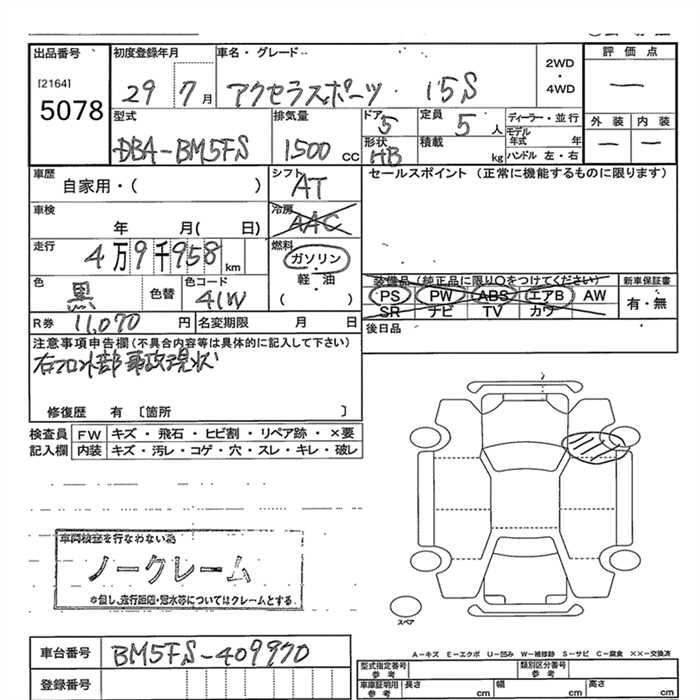 出品番号
[2164]
5078
初度登録年月
29 7月
車名・グレード
アクセラスポーツ 15S
2WD
・
4WD
評価点
―
外装 内装
― ―
型式
DBA-BM5FS
排気量
1500 cc
ドア
5
形状
HB
定員
5 人
積載
kg
ディーラー・並行
モデル年式 年
ハンドル 左・右
車歴
自家用・( )
シフト
AT
セールスポイント (正常に機能するものに限ります)
車検
年 月( 日)
冷房
AAC
走行
4万9千958 km
燃料
ガソリン
・
軽・油
( )
色
黒
色替
色コード
41W
装備品(純正品に限り○をつけてください)
PS PW ABS エアB AW
SR ナビ TV カワ
新車保証書
有・無
R券 11,070 円
名変期限 月 日
後日品
注意事項申告欄(不具合内容等は具体的に記入して下さい)
右フロント部事故現状
修復歴 有 〔箇所 〕
検査員 FW キズ・飛石・ヒビ割・リペア跡・×要
記入欄 内装 キズ・汚レ・コゲ・穴・スレ・キレ・破レ
車両検査を行なわない為
ノークレーム
※但し、走行距離・冠水等についてはクレームとする。
スペア
A-キズ E-エクボ U-凹み W-補修跡 S-サビ C-腐食 ××-交換済
車台番号 BM5FS-409970
登録番号
型式指定番号
参考
類別区分番号
参考
車庫証明用
参考
長さ cm
幅 cm
高さ cm